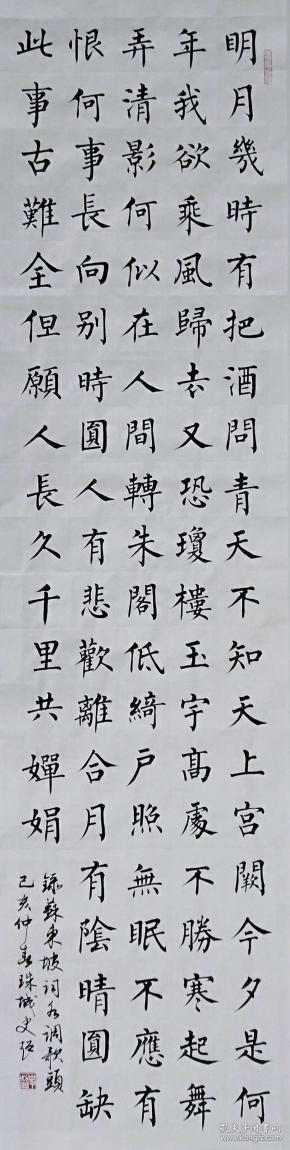 明月幾時有把酒問青天不知天上宮闕今夕是何
年我欲乘風歸去又恐瓊樓玉宇高處不勝寒起舞
弄清影何似在人間轉朱閣低綺戶照無眠不應有
恨何事長向别時圓人有悲歡離合月有陰晴圓缺
此事古難全但願人長久千里共嬋娟
錄蘇東坡詞水調歌頭
己亥仲春珠城史